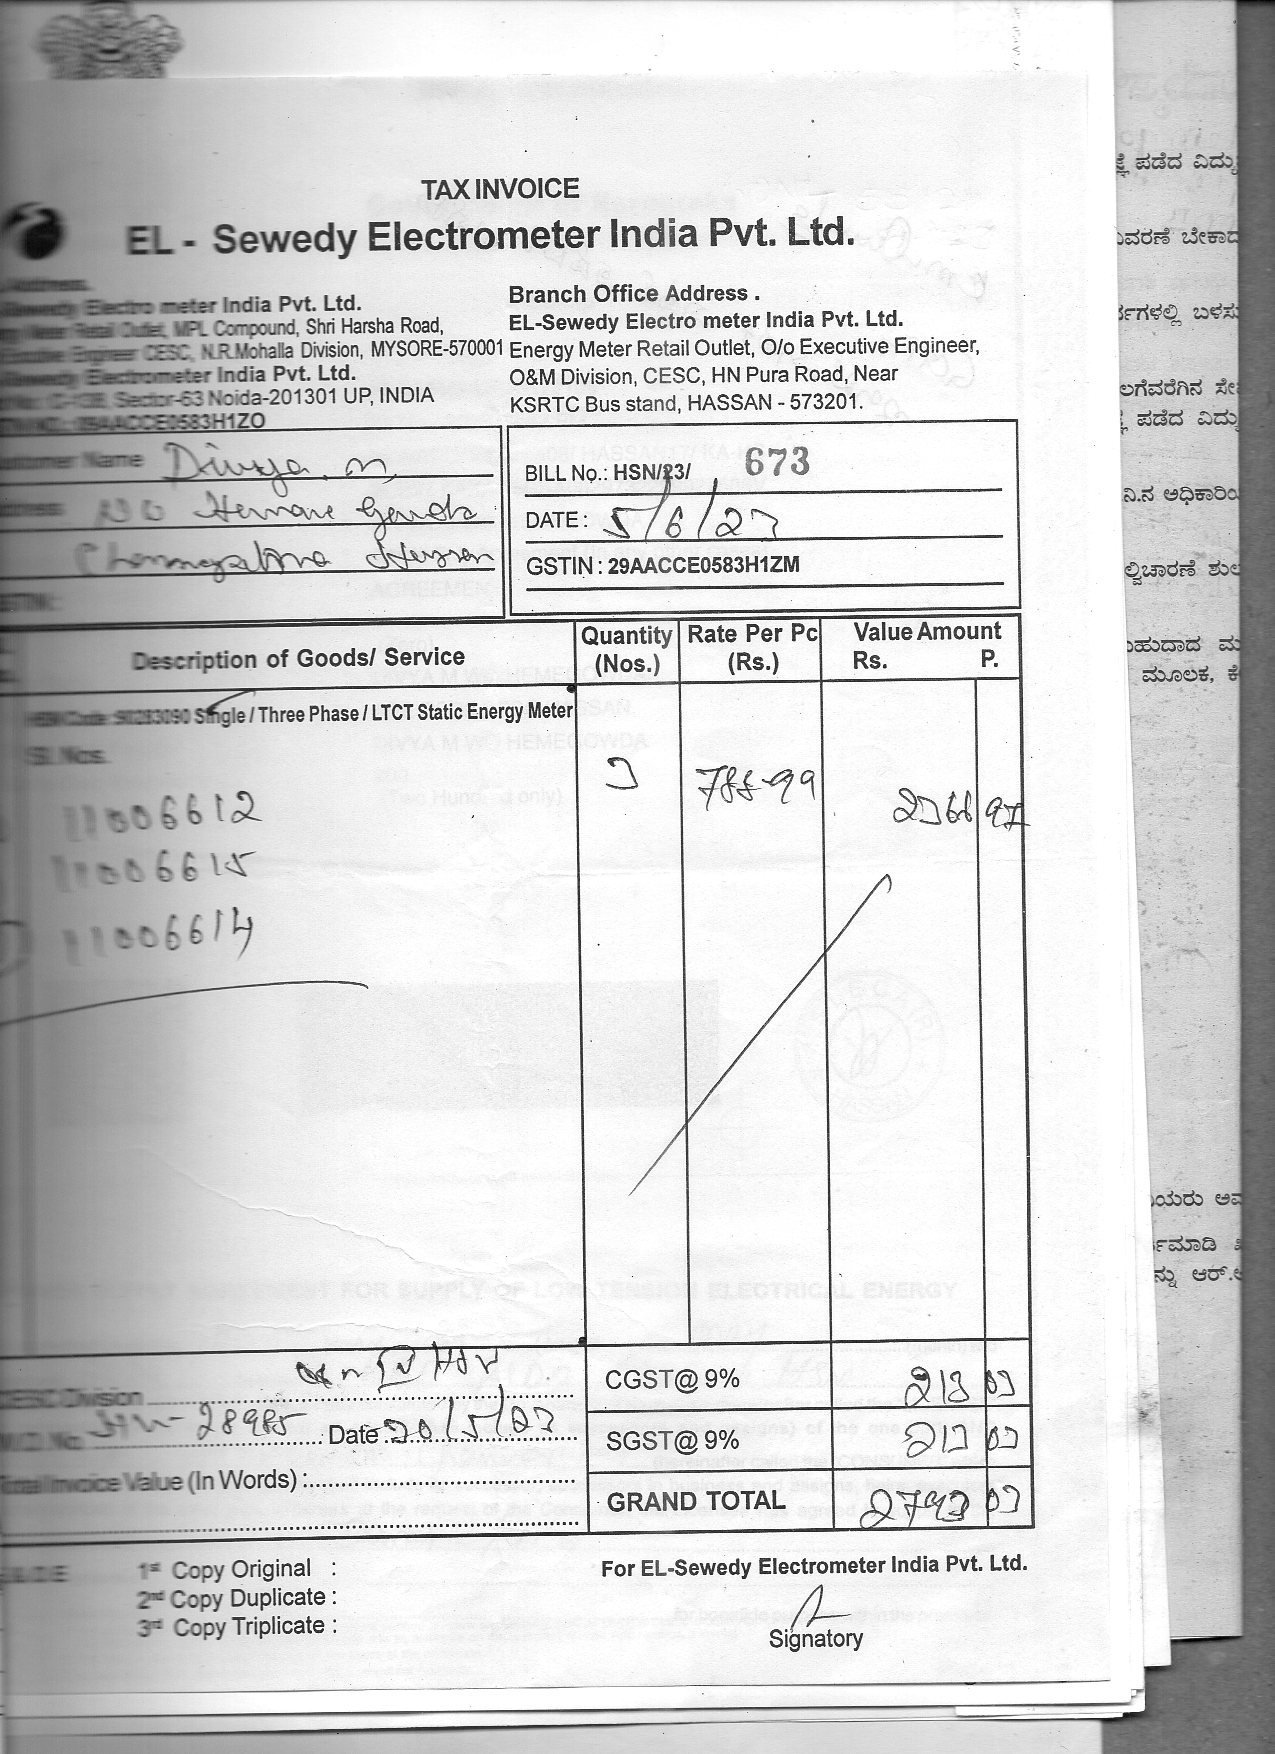 TAX INVOICE
EL - Sewedy Electrometer India Pvt. Ltd.
Address
Sewedy Electro meter India Pvt. Ltd.
Meter Retail Outlet, MPL Compound, Shri Harsha Road,
Executive Engineer CESC, N.R.Mohalla Division, MYSORE-570001
Sewedy Electrometer India Pvt. Ltd.
Sector-63 Noida-201301 UP, INDIA
29AACCE0583H1ZO
Branch Office Address .
EL-Sewedy Electro meter India Pvt. Ltd.
Energy Meter Retail Outlet, O/o Executive Engineer,
O&M Division, CESC, HN Pura Road, Near
KSRTC Bus stand, HASSAN - 573201.
Customer Name Divya. m
Address
BILL No.: HSN/23/ 673
DATE : 5/6/23
GSTIN : 29AACCE0583H1ZM
GSTIN:
Description of Goods/ Service
Quantity (Nos.)
Rate Per Pc (Rs.)
Value Amount
Rs. P.
HSN Code :90283090 Single / Three Phase / LTCT Static Energy Meter
Sl. Nos.
3 788-99 2366 97
11006612
11006615
11006614
CESC Division
28985 Date :20/5/23
Total Invoice Value (In Words) :
CGST@ 9% 213 03
SGST@ 9% 213 03
GRAND TOTAL 2793 03
1st Copy Original :
2nd Copy Duplicate :
3rd Copy Triplicate :
For EL-Sewedy Electrometer India Pvt. Ltd.
Signatory
ಪಡೆದ
ಬಳಸು
ಪಡೆದ
ಮೂಲಕ,